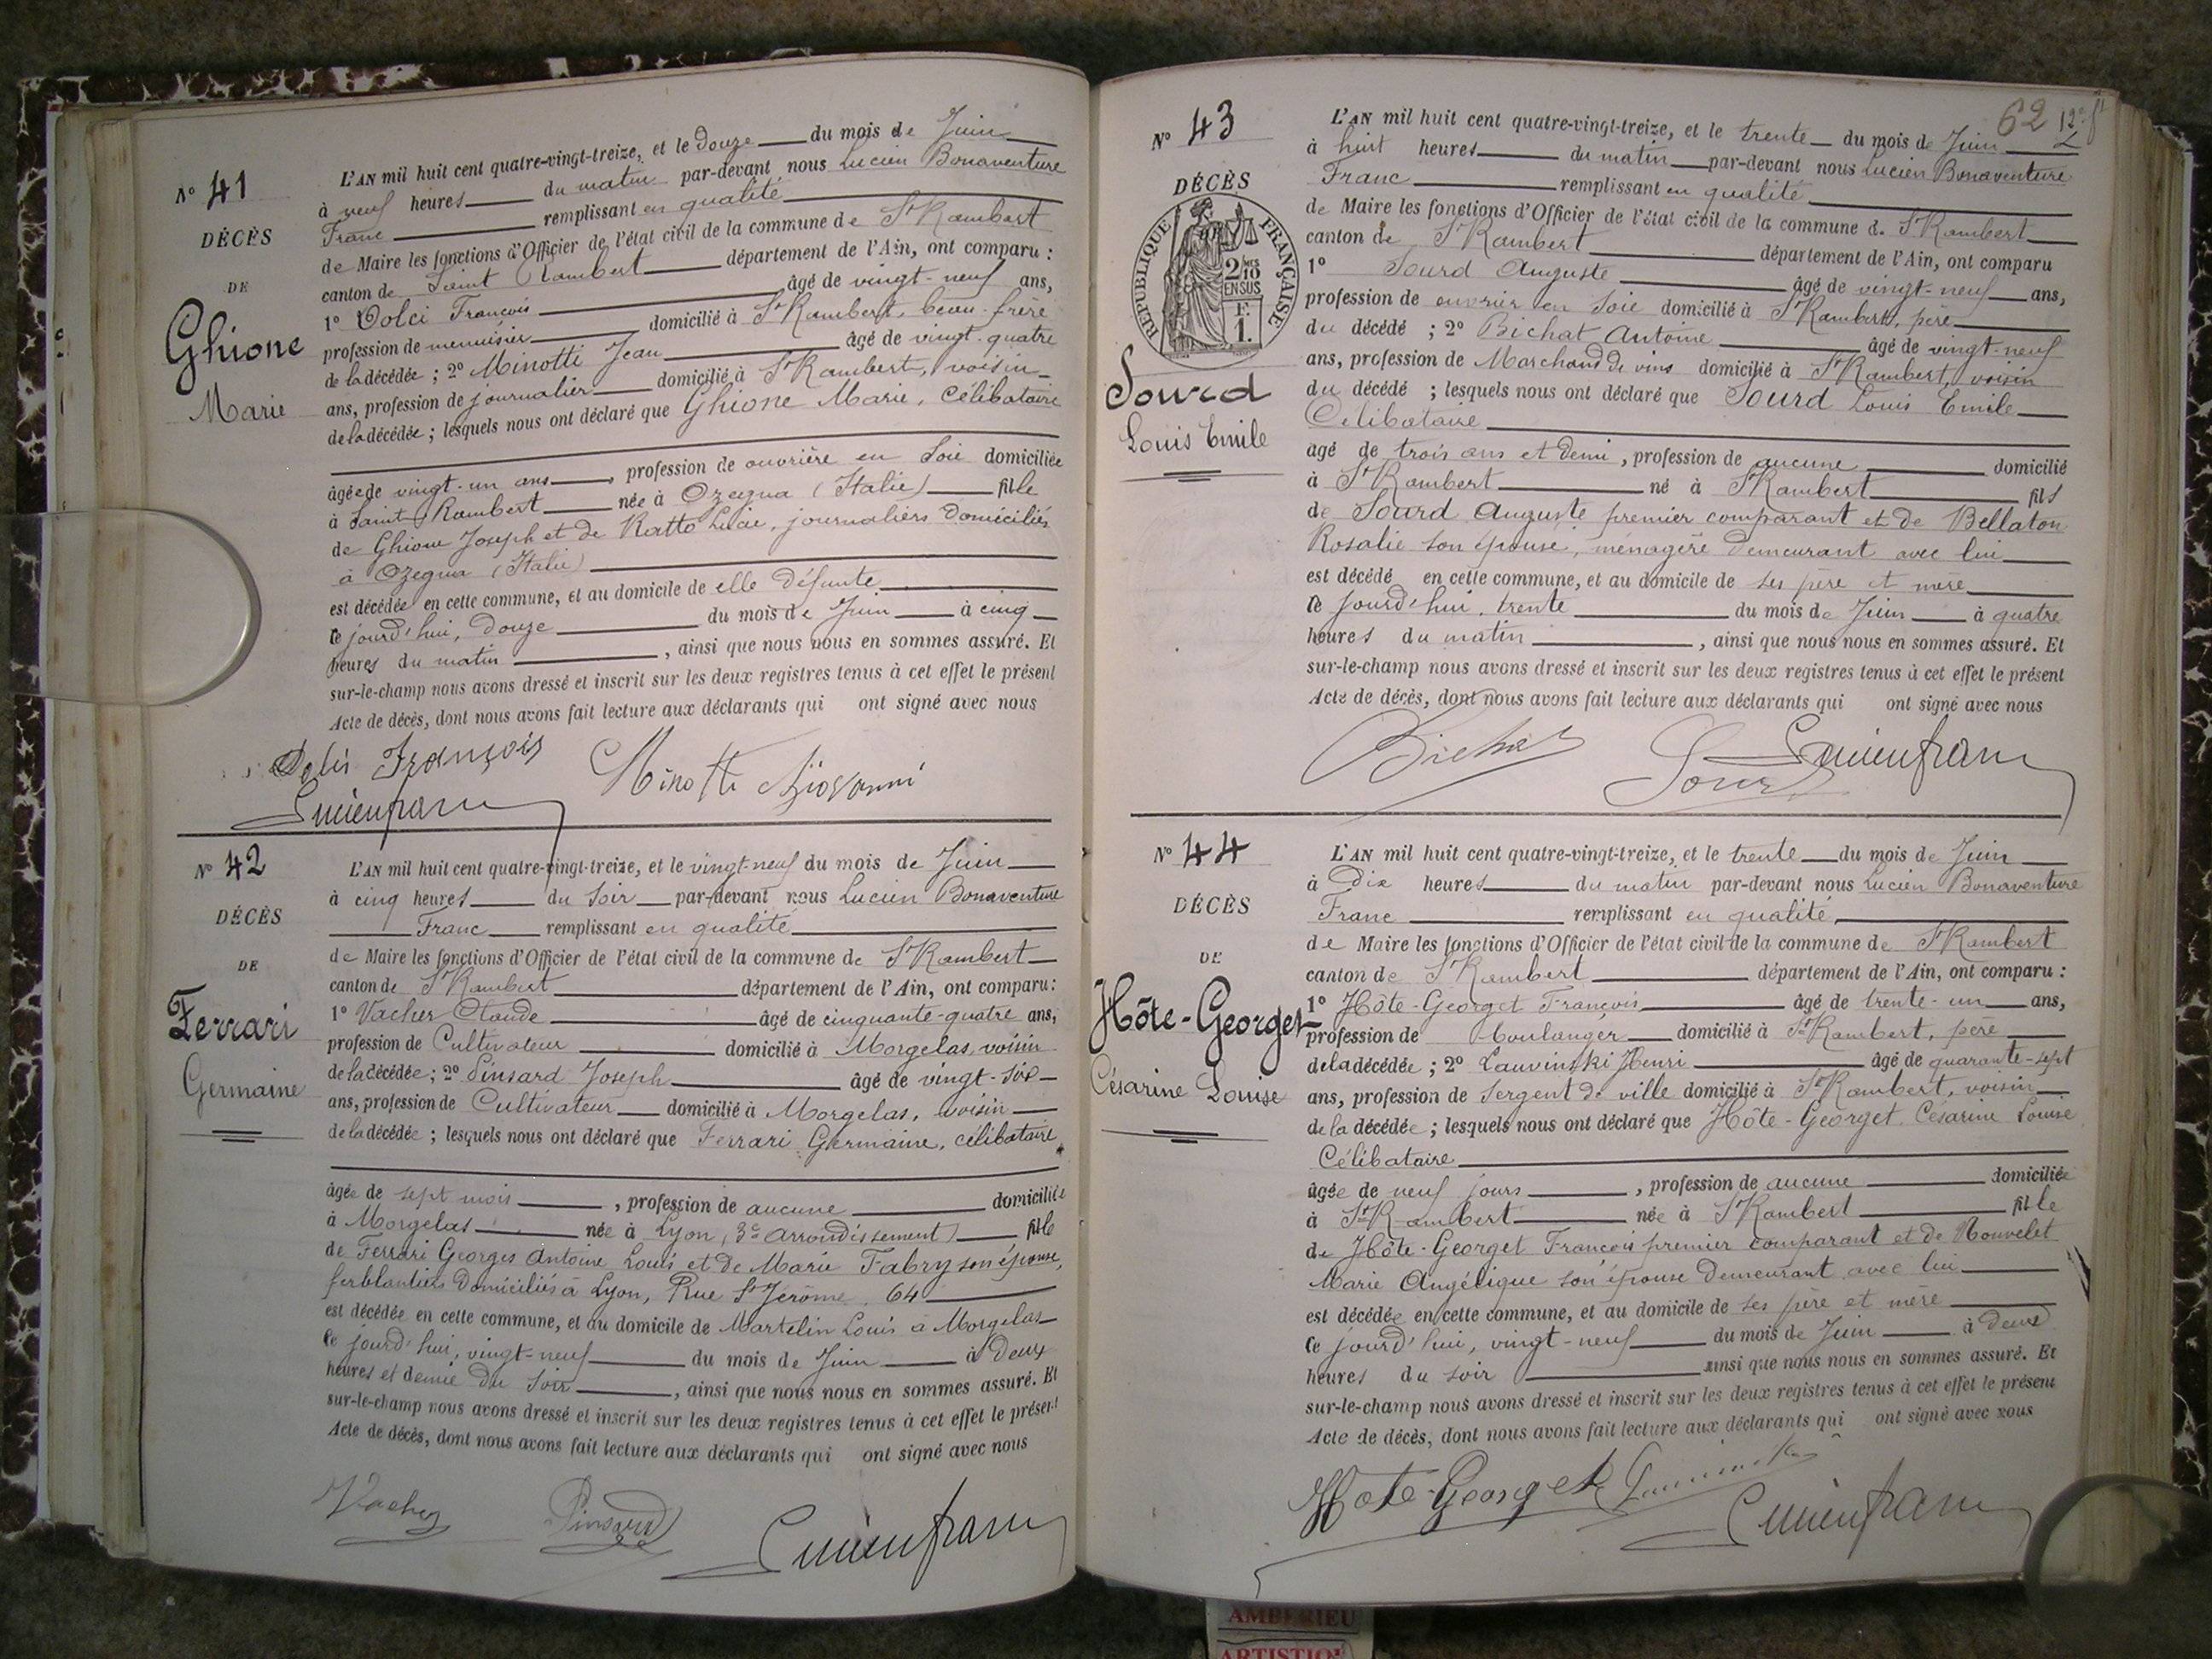 N° 41
DÉCÈS
DE
Ghione
Marie
L'AN mil huit cent quatre-vingt-treize, et le Douze du mois de Juin
à neuf heures du matin par-devant nous Lucien Bonaventure
Franc remplissant en qualité
de Maire les fonctions d'Officier de l'état civil de la commune de St Rambert
canton de Saint Rambert département de l'Ain, ont comparu :
1° Dolci François âgé de vingt-neuf ans,
profession de menuisier domicilié à St Rambert, beau-frère
de la décédée ; 2° Minotti Jean âgé de vingt-quatre
ans, profession de journalier domicilié à St Rambert, voisin
de la décédée ; lesquels nous ont déclaré que Ghione Marie, Célibataire
âgée de vingt-un ans, profession de ouvrière en Soie domiciliée
à Saint Rambert née à Ozegna (Italie) fille
de Ghione Joseph et de Ratto Lucie, journaliers domiciliés
à Ozegna (Italie)
est décédée en cette commune, et au domicile de elle défunte
ce jourd'hui, Douze du mois de Juin à cinq
heures du matin, ainsi que nous nous en sommes assuré. Et
sur-le-champ nous avons dressé et inscrit sur les deux registres tenus à cet effet le présent
Acte de décès, dont nous avons fait lecture aux déclarants qui ont signé avec nous
François Minotti Giovanni
Lucien franc
N° 42
DÉCÈS
DE
Ferrari
Germaine
L'AN mil huit cent quatre-vingt-treize, et le vingt-neuf du mois de Juin
à cinq heures du Soir par-devant nous Lucien Bonaventure
Franc remplissant en qualité
de Maire les fonctions d'Officier de l'état civil de la commune de St Rambert
canton de St Rambert département de l'Ain, ont comparu :
1° Vacher Claude âgé de cinquante-quatre ans,
profession de Cultivateur domicilié à Morgelas, voisin
de la décédée ; 2° Pinsard Joseph âgé de vingt-six
ans, profession de Cultivateur domicilié à Morgelas, voisin
de la décédée ; lesquels nous ont déclaré que Ferrari Germaine, célibataire
âgée de sept mois, profession de aucune domiciliée
à Morgelas née à Lyon (3e arrondissement) fille
de Ferrari Georges Antoine Louis et de Marie Fabry son épouse,
ferblantiers Domiciliés à Lyon, Rue St Jérôme, 64
est décédée en cette commune, et au domicile de Martelin Louis à Morgelas
ce jourd'hui, vingt-neuf du mois de Juin à Deux
heures et demie du Soir, ainsi que nous nous en sommes assuré. Et
sur-le-champ nous avons dressé et inscrit sur les deux registres tenus à cet effet le présent
Acte de décès, dont nous avons fait lecture aux déclarants qui ont signé avec nous
Vacher Pinsard Lucien franc
62
N° 43
DÉCÈS
RÉPUBLIQUE FRANÇAISE
2/10 MES
EN SUS
F.
1.
Sourd
Louis Emile
L'AN mil huit cent quatre-vingt-treize, et le trente du mois de Juin
à huit heures du matin par-devant nous Lucien Bonaventure
Franc remplissant en qualité
de Maire les fonctions d'Officier de l'état civil de la commune de St Rambert
canton de St Rambert département de l'Ain, ont comparu
1° Sourd Auguste âgé de vingt-neuf ans,
profession de ouvrier en Soie domicilié à St Rambert, père
du décédé ; 2° Bichat Antoine âgé de vingt-neuf
ans, profession de Marchand de vins domicilié à St Rambert, voisin
du décédé ; lesquels nous ont déclaré que Sourd Louis Emile
Célibataire
agé de trois ans et demi, profession de aucune domicilié
à St Rambert né à St Rambert fils
de Sourd Auguste premier comparant et de Bellaton
Rosalie son épouse, ménagère demeurant avec lui
est décédé en cette commune, et au domicile de ses père et mère
ce jourd'hui, trente du mois de Juin à quatre
heures du matin, ainsi que nous nous en sommes assuré. Et
sur-le-champ nous avons dressé et inscrit sur les deux registres tenus à cet effet le présent
Acte de décès, dont nous avons fait lecture aux déclarants qui ont signé avec nous
Bichat Sourd Lucien franc
N° 44
DÉCÈS
DE
Hôte-Georget
Césarine Louise
L'AN mil huit cent quatre-vingt-treize, et le trente du mois de Juin
à Dix heures du matin par-devant nous Lucien Bonaventure
Franc remplissant en qualité
de Maire les fonctions d'Officier de l'état civil de la commune de St Rambert
canton de St Rambert département de l'Ain, ont comparu :
1° Hôte-Georget François âgé de trente-un ans,
profession de boulanger domicilié à St Rambert, père
de la décédée ; 2° Lauvinski Henri âgé de quarante-sept
ans, profession de Sergent de ville domicilié à St Rambert, voisin
de la décédée ; lesquels nous ont déclaré que Hôte-Georget Césarine Louise
Célibataire
âgée de neuf jours, profession de aucune domiciliée
à St Rambert née à St Rambert fille
de Hôte-Georget François premier comparant et de Nouvelet
Marie Angélique son épouse demeurant avec lui
est décédée en cette commune, et au domicile de ses père et mère
ce jourd'hui, vingt-neuf du mois de Juin à Deux
heures du soir ainsi que nous nous en sommes assuré. Et
sur-le-champ nous avons dressé et inscrit sur les deux registres tenus à cet effet le présent
Acte de décès, dont nous avons fait lecture aux déclarants qui ont signé avec nous
Hote-Georget Lauvinski Lucien franc
AMBERIEU
ARTISTIQU